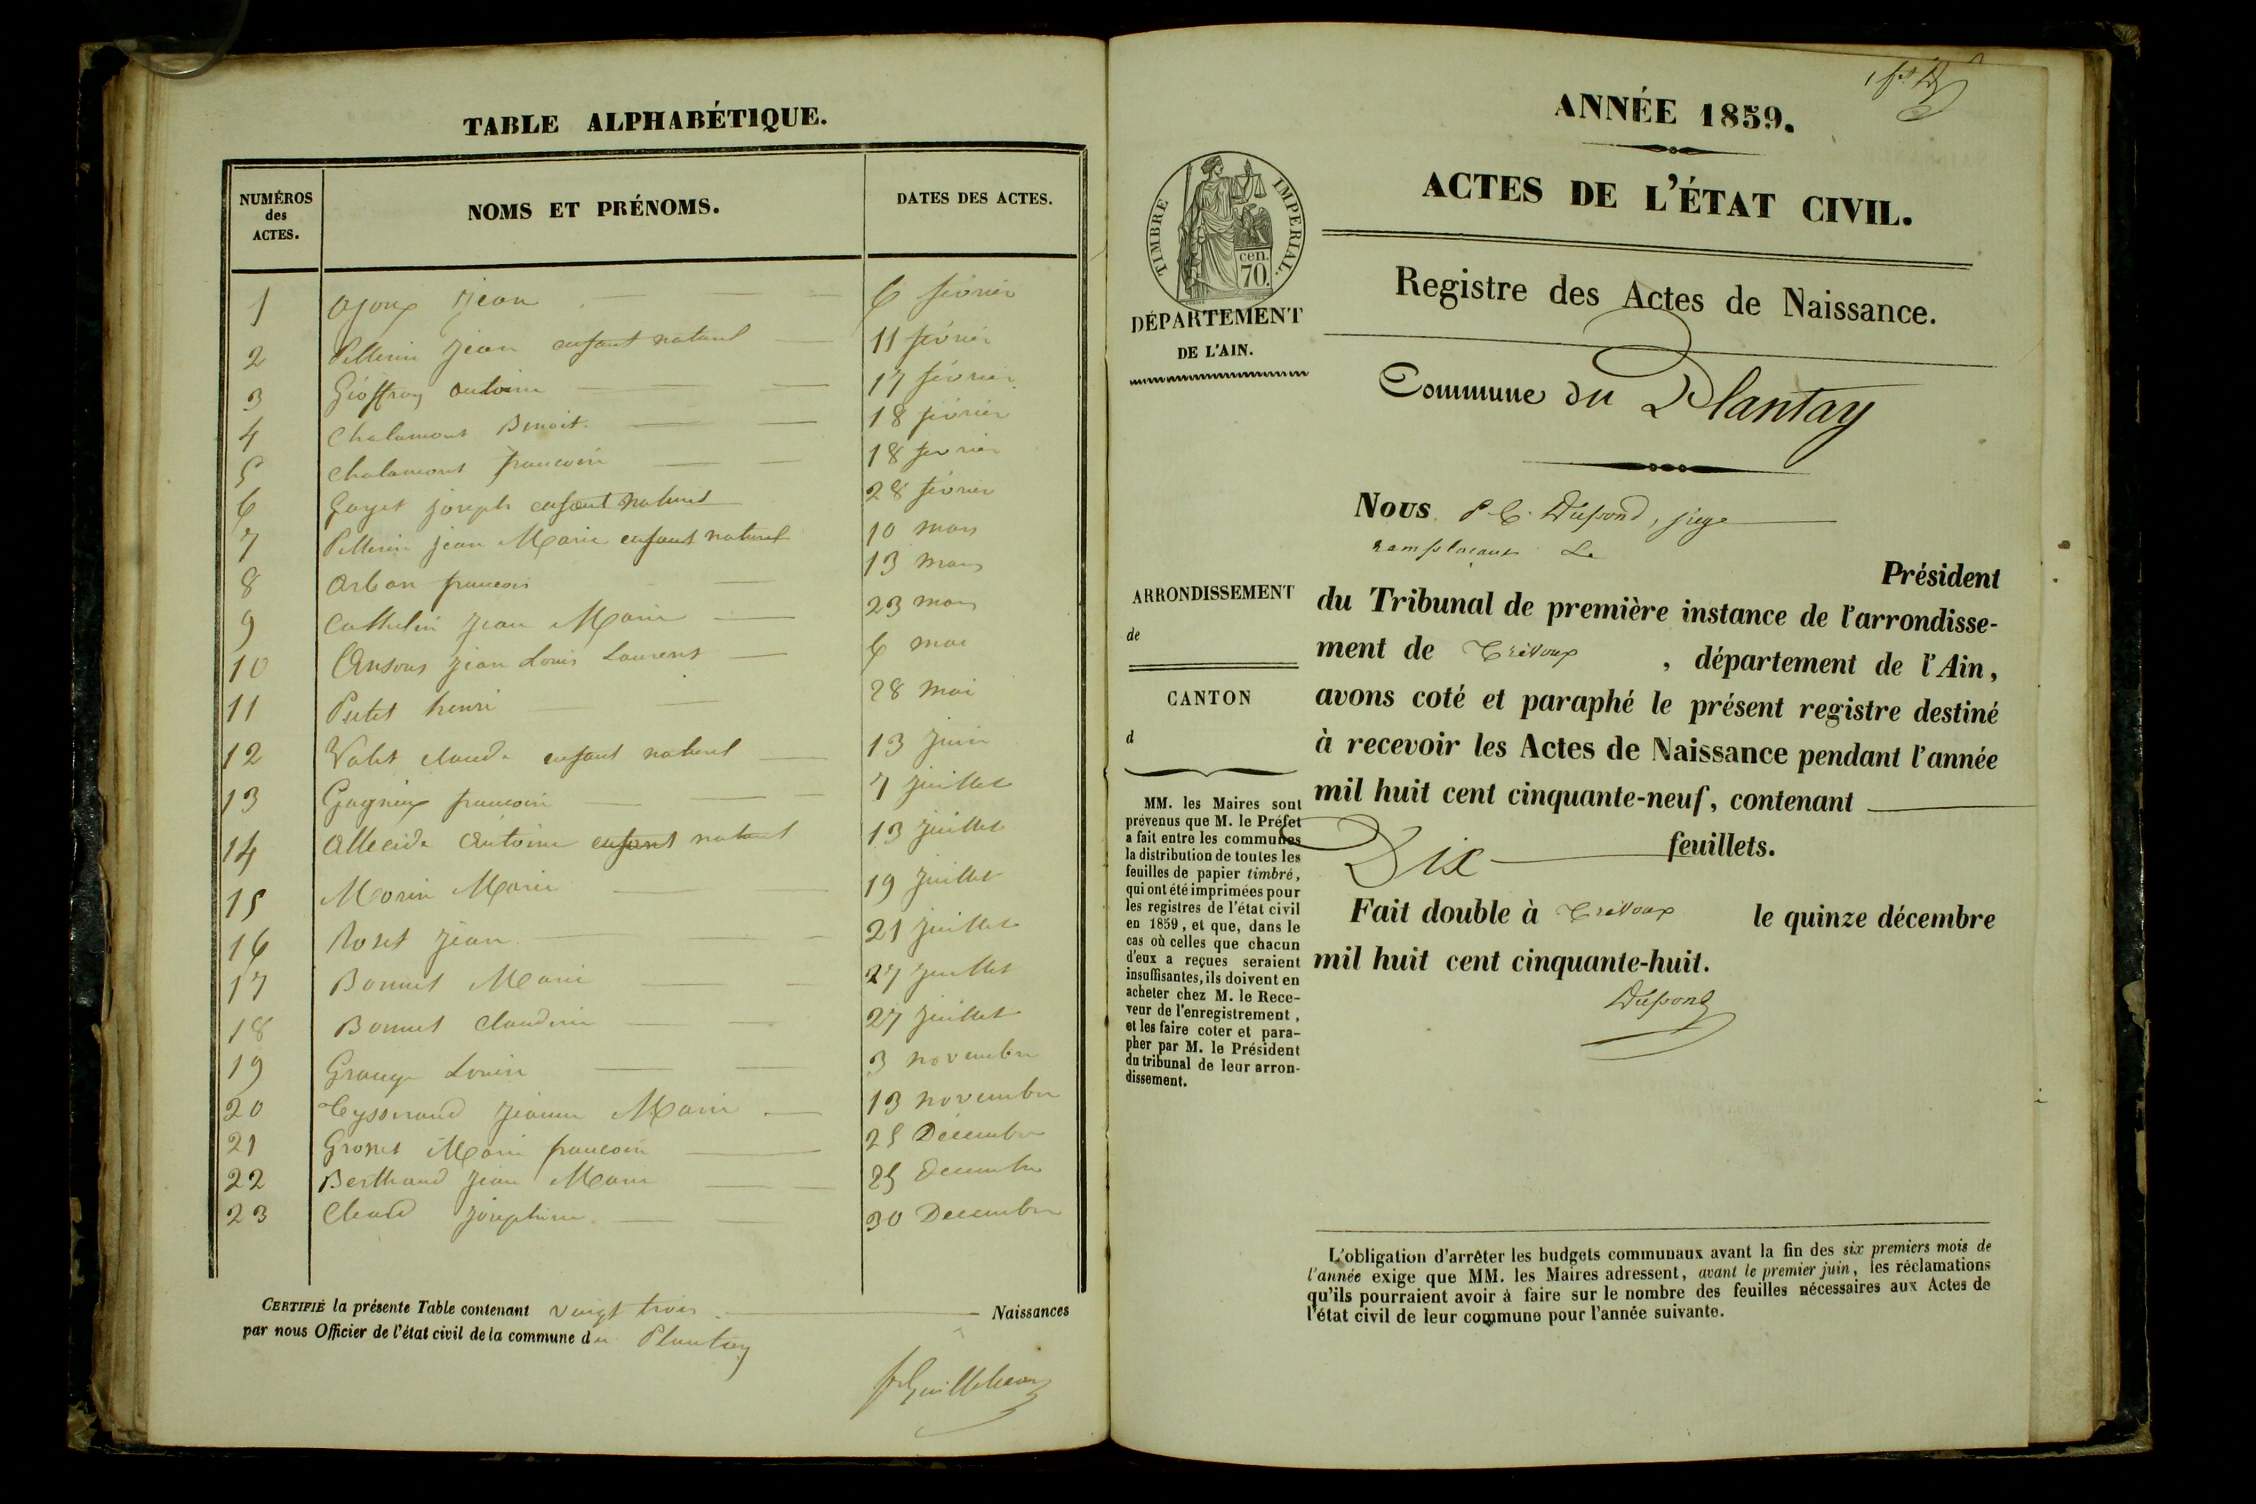 TABLE ALPHABÉTIQUE.
NUMÉROS des ACTES. NOMS ET PRÉNOMS. DATES DES ACTES.
1 Ajoux Jean 6 février
2 Pellerin Jean enfant naturel 11 février
3 Géoffray Antoine 17 février
4 Chalamont Benoit 18 février
5 Chalamont francoise 18 fevrier
6 Gayet joseph enfant naturel 28 février
7 Pellerin jean Marie enfant naturel 10 mars
8 Arban francois 13 mars
9 Cathelin Jean Marie 23 mars
10 Jean Louis Laurent 6 mai
11 Putet henri 28 mai
12 Valet claude enfant naturel 13 juin
13 Gagnieux francoise 7 juillet
14 Antoine enfant naturel 13 juillet
15 Morin Marie 19 juillet
16 Roset Jean 21 juillet
17 Bonnet Marie 27 juillet
18 Bonnet Claudine 27 juillet
19 Grange Louise 3 novembre
20 Teysserand Jeanne Marie 13 novembre
21 Marie francoise 25 Décembre
22 Berthaud Jean Marie 25 decembre
23 Joséphine 30 Decembre
CERTIFIÉ la présente Table contenant vingt trois Naissances
par nous Officier de l'état civil de la commune du Plantay
ANNÉE 1859.
ACTES DE L'ÉTAT CIVIL.
TIMBRE IMPERIAL.
cen.
70.
Registre des Actes de Naissance.
DÉPARTEMENT
DE L'AIN.
Commune du Plantay
Nous Dupond, juge
remplaçant Le
Président
ARRONDISSEMENT
de
CANTON
d
du Tribunal de première instance de l'arrondisse-
ment de Trévoux, département de l'Ain,
avons coté et paraphé le présent registre destiné
à recevoir les Actes de Naissance pendant l'année
mil huit cent cinquante-neuf, contenant
Dix feuillets.
Fait double à Trévoux le quinze décembre
mil huit cent cinquante-huit.
Dupond
MM. les Maires sont
prévenus que M. le Préfet
a fait entre les communes
la distribution de toutes les
feuilles de papier timbré,
qui ont été imprimées pour
les registres de l'état civil
en 1859, et que, dans le
cas où celles que chacun
d'eux a reçues seraient
insuffisantes, ils doivent en
acheter chez M. le Rece-
veur de l'enregistrement,
et les faire coter et para-
pher par M. le Président
du tribunal de leur arron-
dissement.
L'obligation d'arrêter les budgets communaux avant la fin des six premiers mois de
l'année exige que MM. les Maires adressent, avant le premier juin, les réclamations
qu'ils pourraient avoir à faire sur le nombre des feuilles nécessaires aux Actes de
l'état civil de leur commune pour l'année suivante.